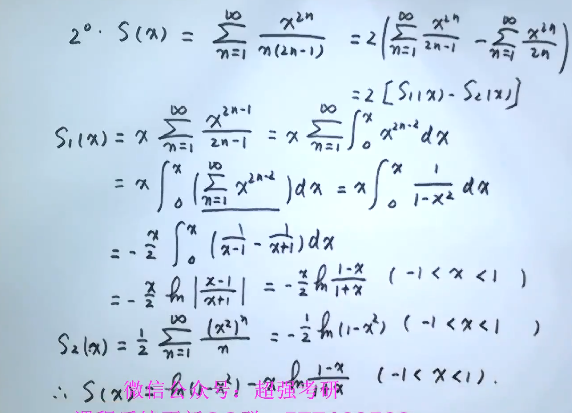 2°. S(x) = ∑_{n=1}^{∞} x^{2n}/(n(2n-1)) = 2(∑_{n=1}^{∞} x^{2n}/(2n-1) - ∑_{n=1}^{∞} x^{2n}/(2n))
= 2[S₁(x) - S₂(x)]
S₁(x) = x ∑_{n=1}^{∞} x^{2n-1}/(2n-1) = x ∑_{n=1}^{∞} ∫_0^x x^{2n-2} dx
= x ∫_0^x (∑_{n=1}^{∞} x^{2n-2}) dx = x ∫_0^x 1/(1-x²) dx
= -x/2 ∫_0^x (1/(x-1) - 1/(x+1)) dx
= -x/2 ln|(x-1)/(x+1)| = -x/2 ln (1-x)/(1+x) (-1<x<1)
S₂(x) = 1/2 ∑_{n=1}^{∞} (x²)^n/n = -1/2 ln(1-x²) (-1<x<1)
∴ S(x) = ln(1-x²) - x ln (1-x)/(1+x) (-1<x<1).
微信公众号：超强考研